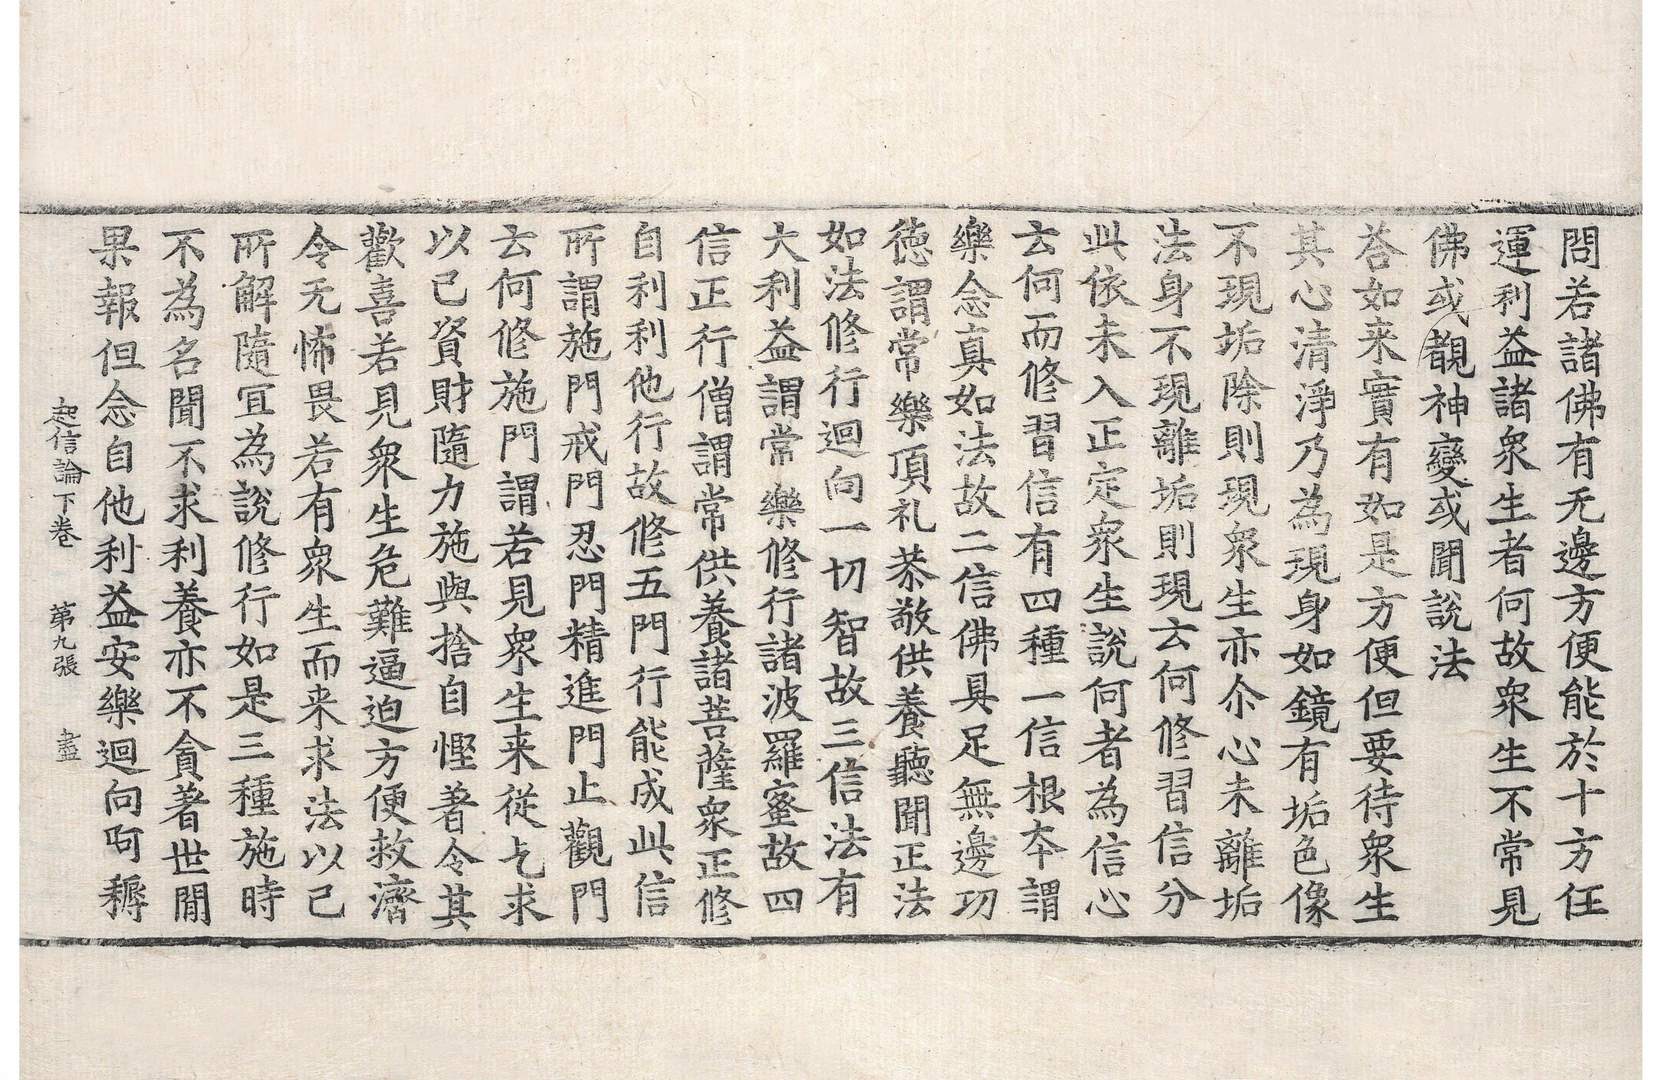 問若諸佛有无邊方便能於十方任
運利益諸衆生者何故衆生不常見
佛或覩神變或聞說法
荅如来實有如是方便但要待衆生
其心清淨乃為現身如鏡有垢色像
不現垢除則現衆生亦尒心未離垢
法身不現離垢則現云何修習信分
此依未入正定衆生說何者為信心
云何而修習信有四種一信根夲謂
樂念真如法故二信佛具足無邊功
徳謂常樂頂礼恭敬供養聽聞正法
如法修行迴向一切智故三信法有
大利益謂常樂修行諸波羅蜜故四
信正行僧謂常供養諸菩薩衆正修
自利利他行故修五門行能成此信
所謂施門戒門忍門精進門止觀門
云何修施門謂若見衆生来從乞求
以己資財隨力施與捨自慳著令其
歡喜若見衆生危難逼迫方便救濟
令无怖畏若有衆生而来求法以己
所解隨冝為說修行如是三種施時
不為名聞不求利養亦不貪著世閒
果報但念自他利益安樂迴向阿耨
起信論下卷　第九張　盡